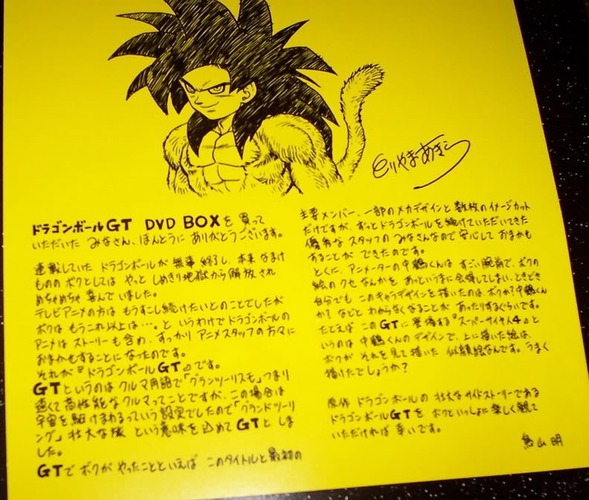 とりやまあきら
ドラゴンボールGT DVD BOXを買って
いただいた みなさん、ほんとうに ありがとうございます。
連載していた ドラゴンボールが 無事 終了し、本来 なまけ
ものの ボクとしては やっと しめきり地獄から 解放され
めちゃめちゃ 喜んで いました。
テレビアニメの方は もうすこし続けたいとのことでしたが
ボクは もうこれ以上は…。と いうわけで ドラゴンボールの
アニメは ストーリーも含め、すっかり アニメスタッフの方々に
おまかせすることに なったのです。
それが『ドラゴンボールGT』です。
GTというのは クルマ用語で「グランツーリスモ」、つまり
速くて高性能なクルマってことですが、この場合は
宇宙を駆けまわるっていう設定でしたので「グランドツーリ
ング」、壮大な旅 という意味を込めて GTと しま
した。
GTで ボクが やったことといえば このタイトルと 最初の
主要メンバー、一部のメカデザインと 数枚のイメージカット
だけですが、ずっとドラゴンボールを続けていただいてきた
優秀な スタッフの みなさんなので 安心して おまかせ
することが できたのです。
とくに、アニメーターの中鶴くんは すごい腕前で、ボクの
絵の クセ なんかを あっというまに会得してしまい、ときどき
自分でも このキャラデザインを描いたのは、ボクか？中鶴くん
か？などと わからなくなることが あったりするくらいです。
たとえば このGTに 登場する『スーパーサイヤ人4』と
いうのは 中鶴くんの デザインで、上に描いた絵は、
ボクが それを見て描いた 似顔絵なんです。うまく
描けたでしょうか？
原作 ドラゴンボールの 壮大なサイドストーリーである
ドラゴンボールGTを ボクといっしょに 楽しく観て
いただければ 幸いです。
鳥山 明